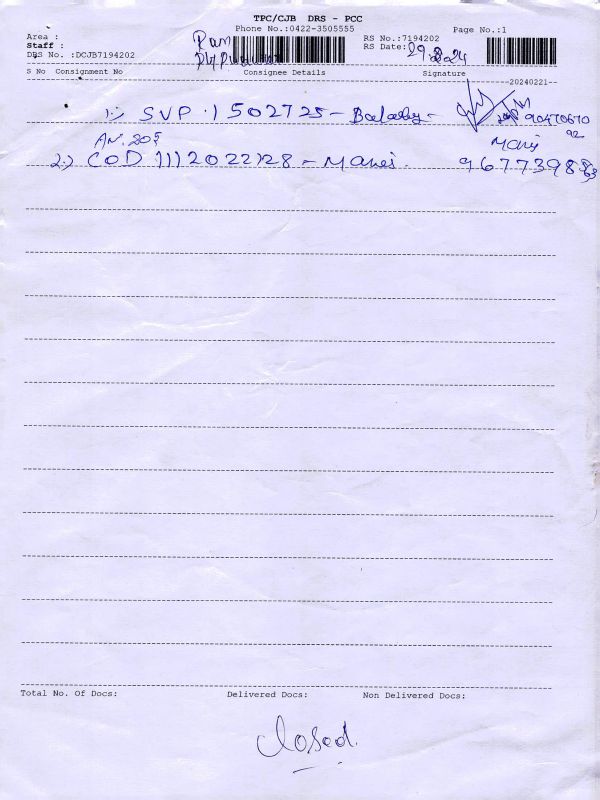 TPC/CJB DRS - PCC
Phone No.:0422-3505555 Page No.:1
Area : RS No.:7194202
Staff : Ram RS Date: 29.8.24
DRS No. :DCJB7194202
S No Consignment No Consignee Details Signature
20240221--
1.) SVP.1502725 -
90470670
92
2.) COD - Manei. Manij
Total No. Of Docs: Delivered Docs: Non Delivered Docs:
Closed.